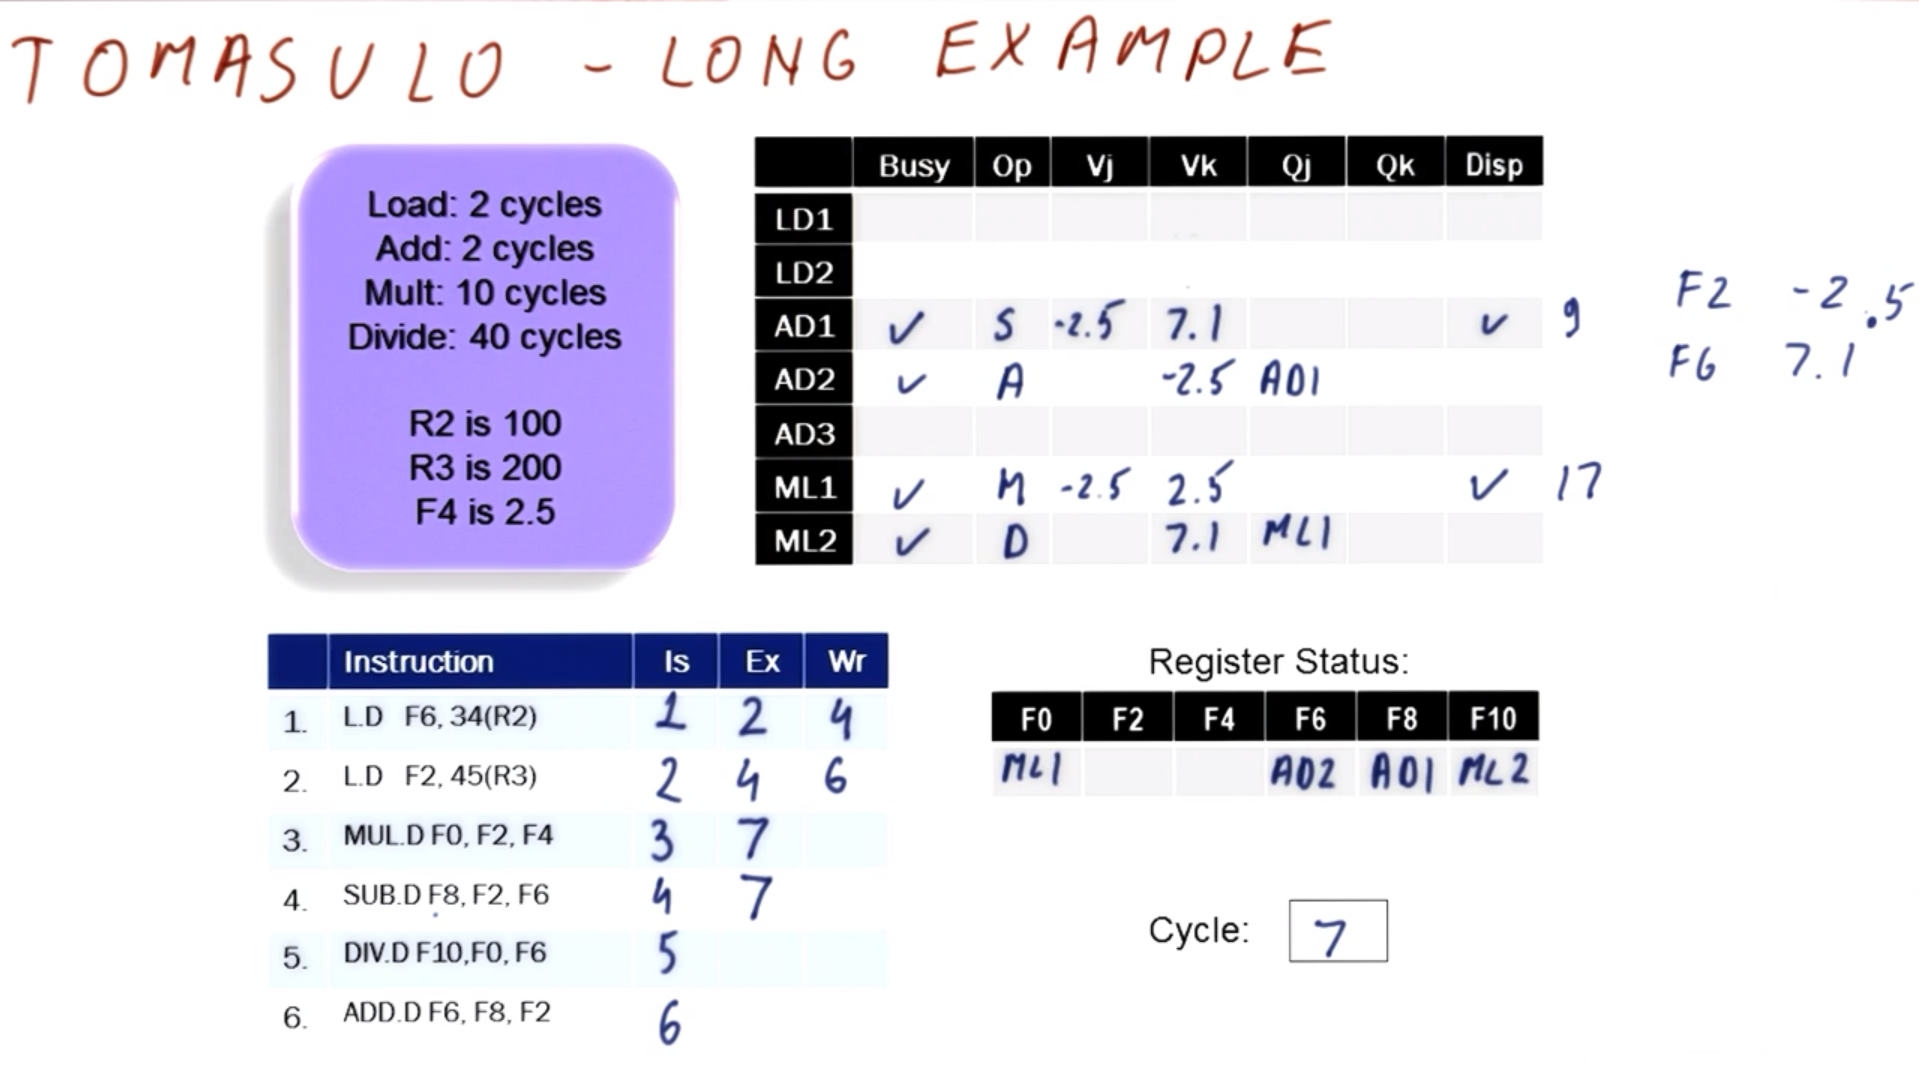 TOMASULO - LONG EXAMPLE
Load: 2 cycles
Add: 2 cycles
Mult: 10 cycles
Divide: 40 cycles
R2 is 100
R3 is 200
F4 is 2.5
Busy Op Vj Vk Qj Qk Disp
LD1
LD2
AD1 ✓ S -2.5 7.1 ✓ 9
AD2 ✓ A -2.5 AD1
AD3
ML1 ✓ M -2.5 2.5 ✓ 17
ML2 ✓ D 7.1 ML1
F2 -2.5
F6 7.1
Instruction Is Ex Wr
1. L.D F6, 34(R2) 1 2 4
2. L.D F2, 45(R3) 2 4 6
3. MUL.D F0, F2, F4 3 7
4. SUB.D F8, F2, F6 4 7
5. DIV.D F10,F0, F6 5
6. ADD.D F6, F8, F2 6
Register Status:
F0 F2 F4 F6 F8 F10
ML1 AD2 AD1 ML2
Cycle: 7